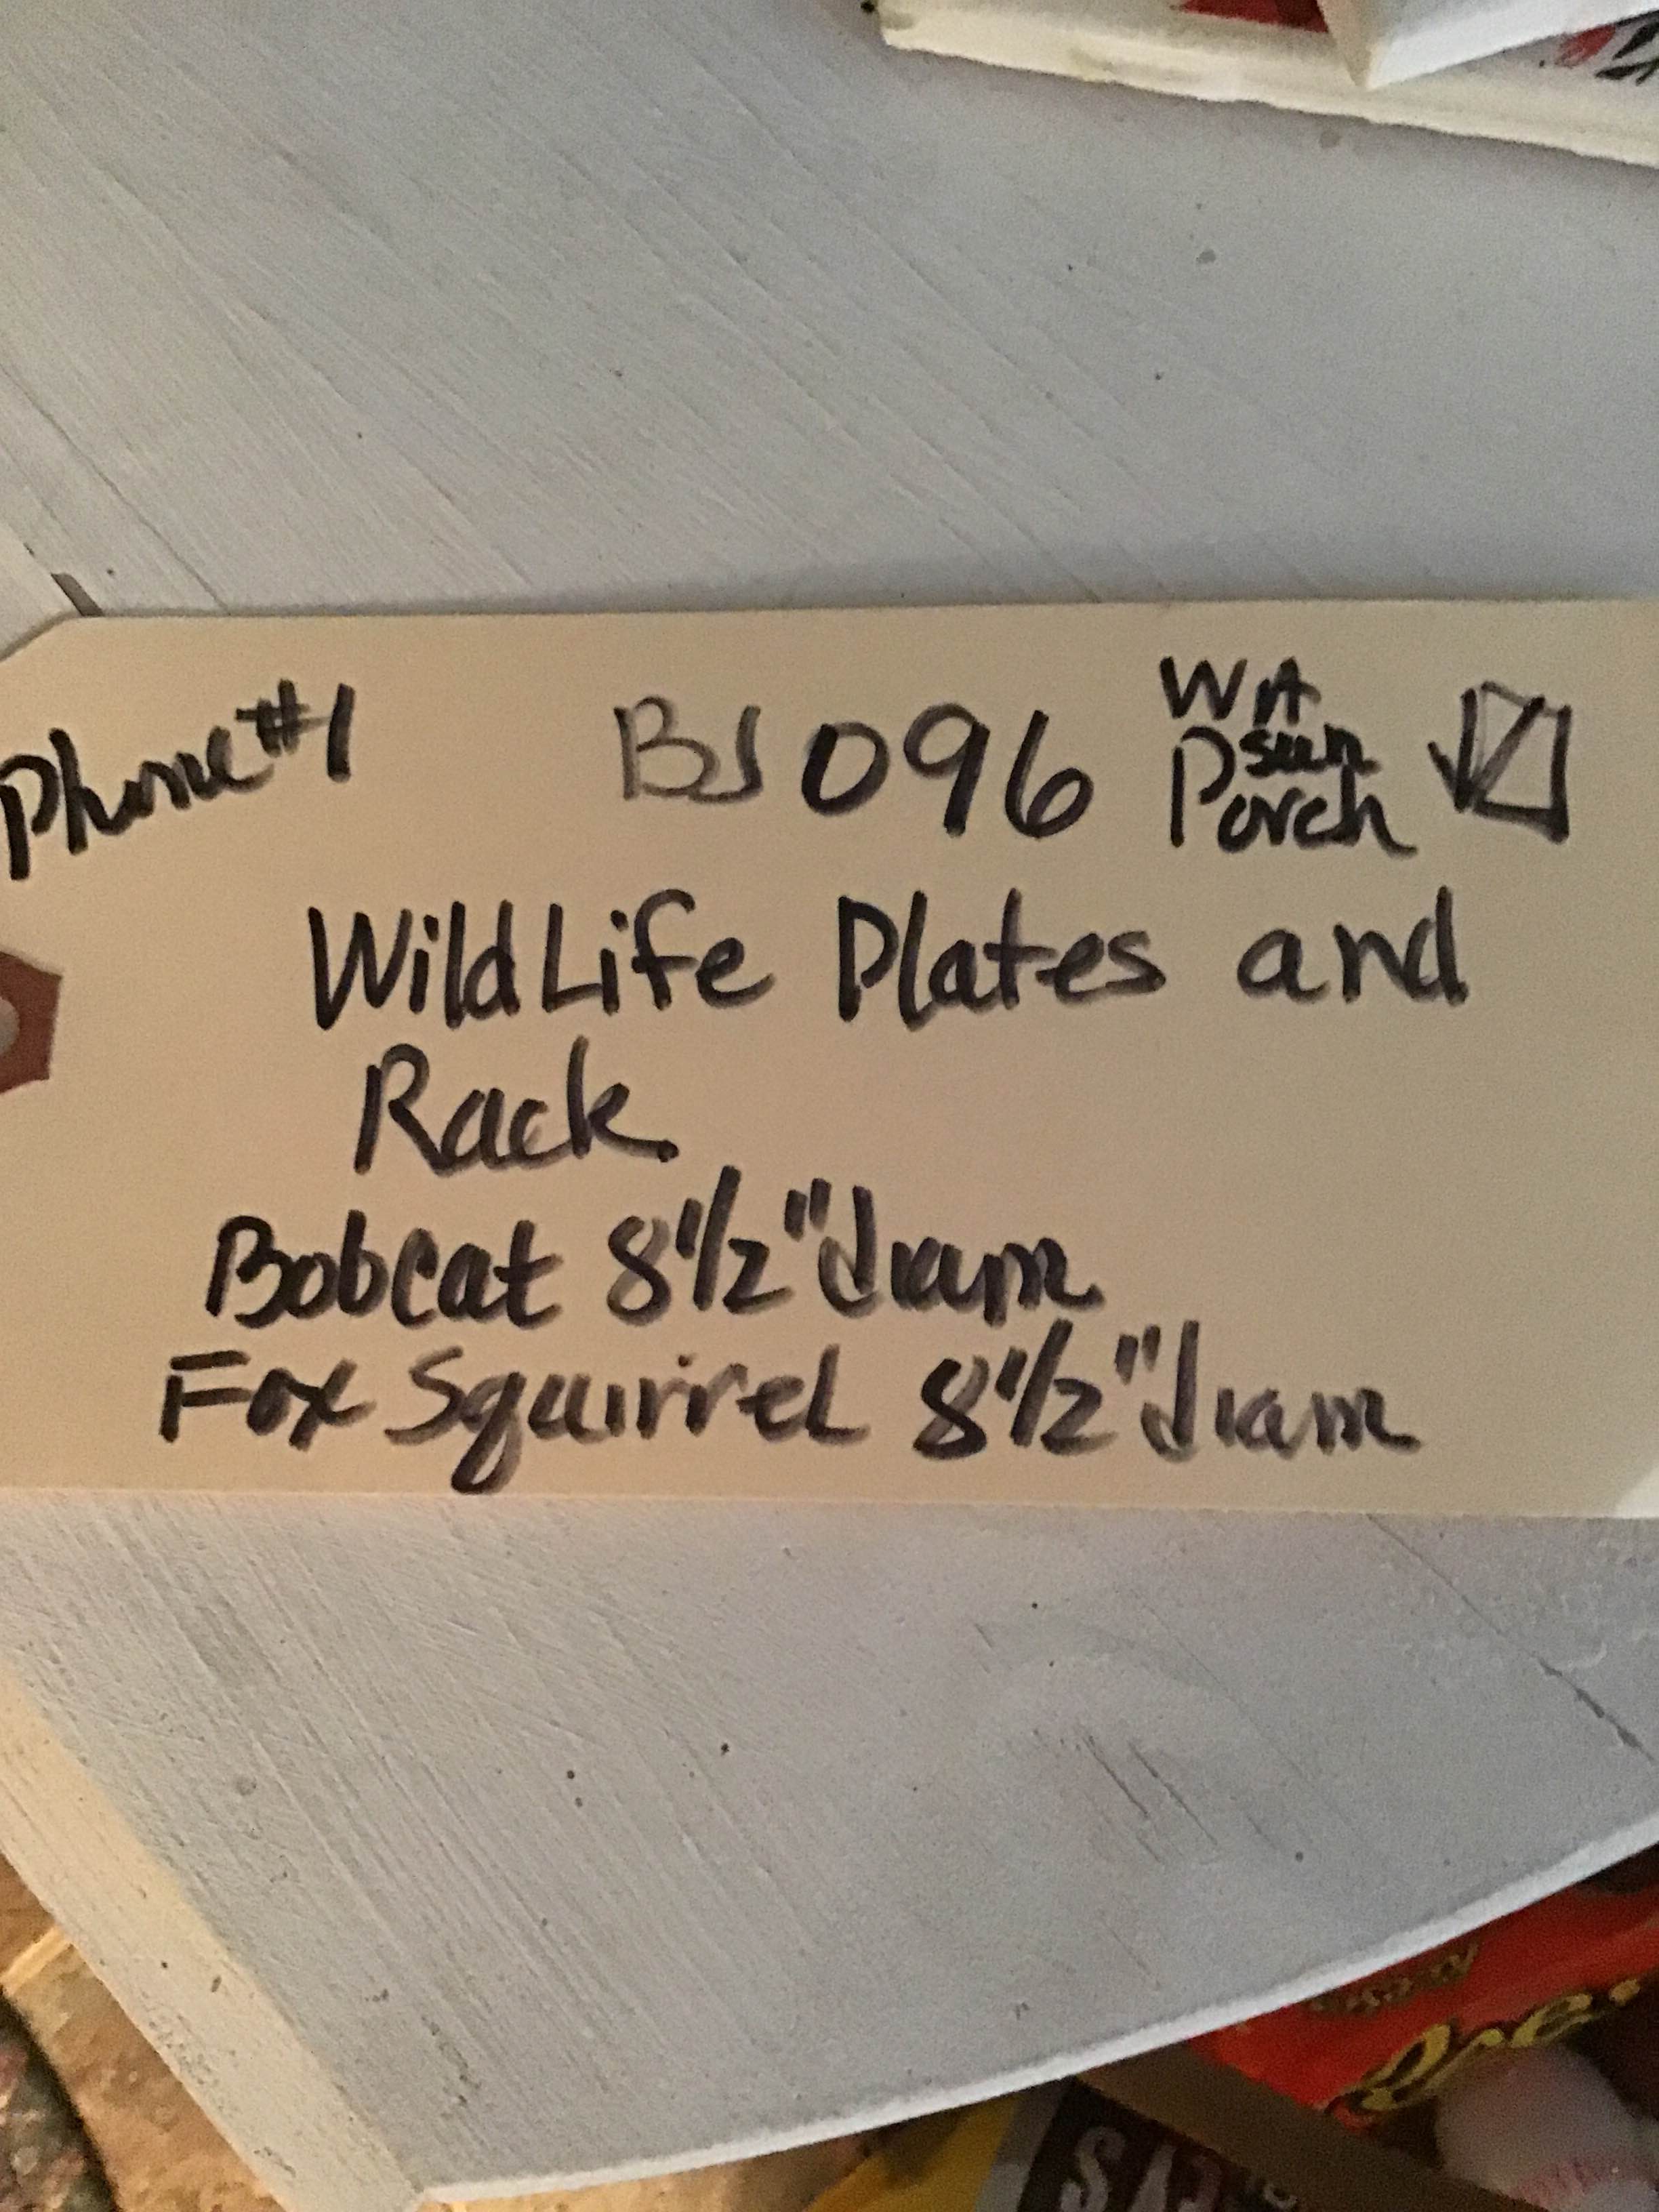 Phone #1 BJ 096 WA sun Porch
WildLife Plates and
Rack
Bobcat 8 1/2" diam
Fox Squirrel 8 1/2" diam
Reese's